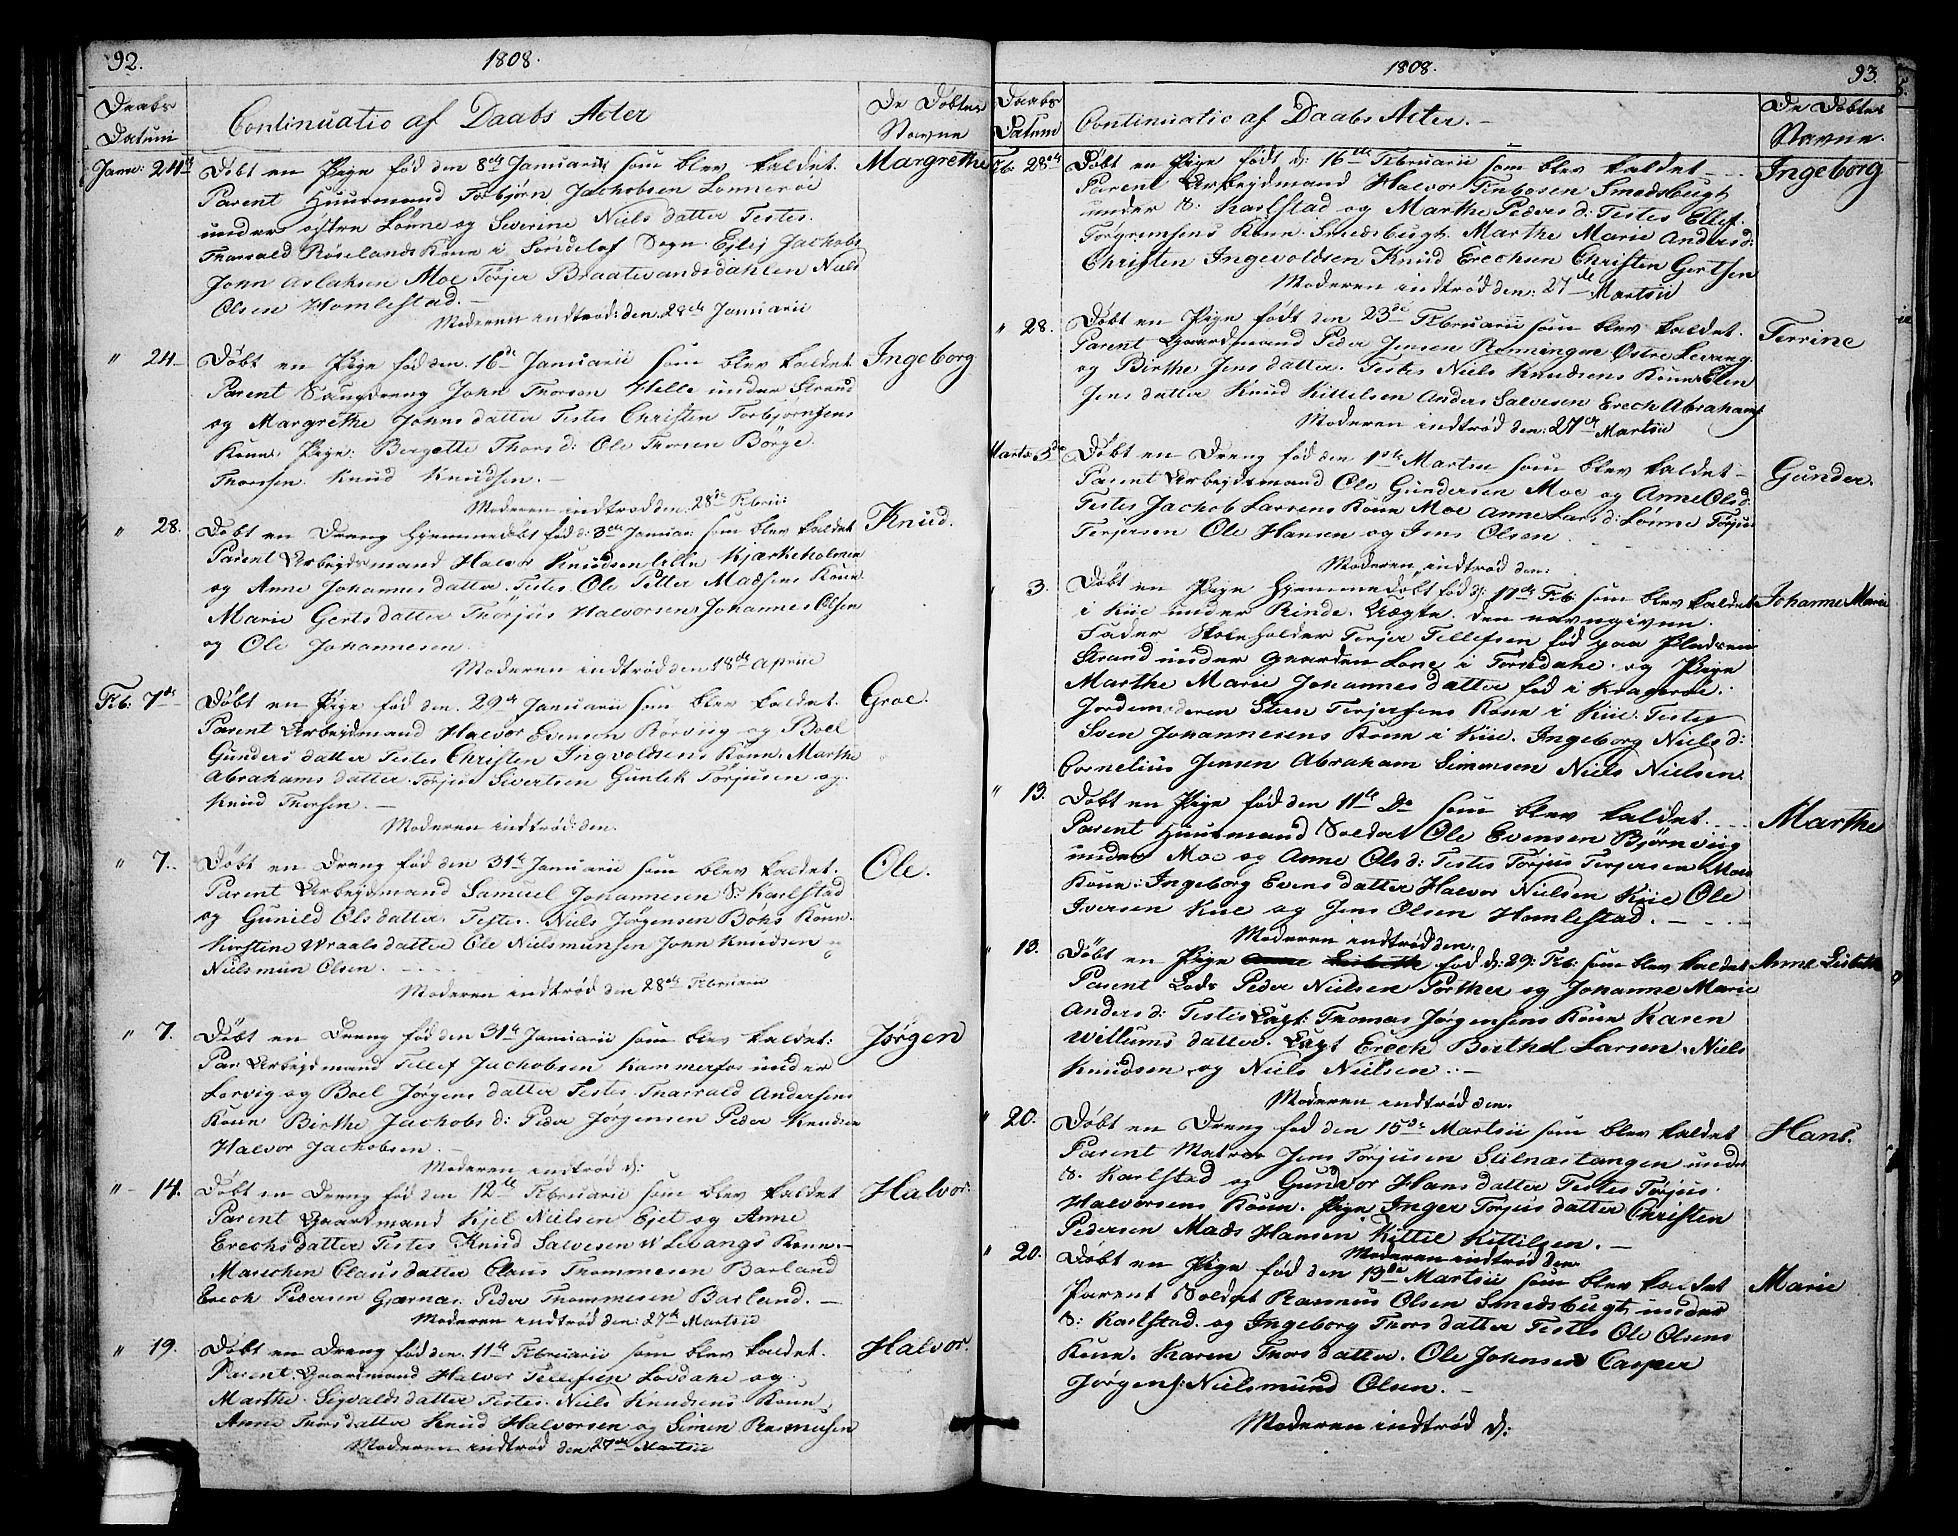 92.
1808.
Daabs Datum
Continuatio af Daabs Acter
De Døbtes Navne
Janu: 24de Døbt en Pige fød den 8de Januarii som blev kaldet Margrethe
Parent Huusmand Torbjørn Jachobsen Lønnerøe
under østre Lønne og Severine Niels datter Testes
Tharald Røselands Kone i Søndelöf Sogn. Ejlej Jachobs
John Aslaksen Moe Törjer Braatevandsdahlen Niels
Olsen Homlestad. —
Moderen indtrød: den 28de Januarii
" 24 Døbt en Pige fød den 16de Januarii som blev kaldet Ingeborg
Parent Saugdreng John Thorsen Helle under Strand
og Margrethe Johnsdatter Testes Christen Torbjornsens
Kone. Pige: Bergette Thors d: Ole Thorsen Börge
Thorsen Knud Knudsen. —
Moderen indtrød den 28de Febru:
" 28. Døbt en Dreng Hjemmedøbt fød d: 3de Januar: som blev kaldet Knud.
Parent Arbejdsmand Halvor Knudsen lille Kjærkeholmen
og Anne Johannesdatter. Testes Ole Petter Madsens Kone
Marie Gertsdatter Thörjus Halvorsen, Johannes Olsen
og Ole Johannesen
Moderen indtrød den 18de Aprili
Feb: 7de Døbt en Pige fød den 29de Januarii som blev kaldet. Groe.
Parent Arbejdmand Halvor Evensen Rörvig og Boel
Gunders datter Testes Christen Ingvoldsens Kone. Marthe
Abrahams datter. Törjus Sivertsen Guntek Törjusen og
Knud Thorsen. —
Moderen indtrød: den.
" 7. Døbt en Dreng fød den 31te Januarii som blev kaldet. Ole.
Parent Arbejdsmand Samuel Johannesen S: Karlstad
og Gunild Olsdatter Testes. Niels Jørgensen Böhs Kone.
Kirstine Wraalsdatter Ole Nielsmunsen John Knudsen og
Nielsmun Olsen.
Moderen indtrød den 28de Februarii
" 7. Døbt en Dreng fød den 31te Januarii som blev kaldet: Jørgen
Par Arbejdmand Tellef Jachobsen Kammerfos under
Lørvig og Boel Jørgens datter Testes. Tharrald Andersens
Kone Birthe Jachobs d: Peder Jørgensen Peder Knudsen
Halvor Jachobsen. —
Moderen indtrød d:
" 14. Døbt en Dreng fød den 12te Februarii som blev kaldet Halvor.
Parent Gaardmand Kjel Nielsen Ejet og Anne
Erechsdatter Testes Knud Salvesen W Levangs Kone. —
Marechen Clausdatter Claus Thommesen Barland
Erech Pedersen Gjernæs. Peder Thommesen Barland. —
Moderen indtrød den: 27de Martsii
" 19. Døbt en Dreng fød den 11te Februarii som blev kaldet. Halvor.
Parent. Gaardmand Halvor Tellefsen Løvdahe og
Marthe. Sigvaldsdatter Testes. Niels Knudsens Kone
Anne Torsdatter Knud Halvorsen og Simen Rasmusen
Moderen indtrød den 27de Martsii
1808.
93.
Daabs Datum
Continuatio af Daabs Acter. —
De Døbtes Navne.
Feb: 28de Døbt en Pige født d: 16de Februarii som blev kaldet Ingeborg
Parent Arbejdmand Halvor Tinbosen Smedsbugt
under S. Karlstad og Marthe Peders d: Testes Ellef
Törgrensens Kone Smedsbugt. Marthe Marie Anders d:
Christen Ingevoldsen Knud Erechsen Christen Gertsen
Moderen indtrød den: 27de Martsii
" 28. Døbt en Pige født den 23de Februarii som blev kaldet. Terrine
Parent Gaardmand Peder Jensen Rønningen Østre Levang
og Birthe Jensdatter. Testes Niels Knudsens Kone Elen
Jens datter Knud Kittelsen Anders Salvesen Erech Abrahams
Moderen indtrød den: 27de Martsii
Marts: 3de Døbt en Dreng fød den 1ste Martsii som blev kaldet Gunder.
Parent Arbejdsmand Ole Gundersen Moe og Anne Ols d.
Testes Jachob Larsens Kone Moe Anne Lars d: Lønne Törjus
Terjersen Ole Hansen og Jens Olsen
Moderen indtrød den:
3. Døbt en Pige Hjemmedøbt fød d: 17de Feb: som blev kaldet Johanne Marie
i Kiie under Rinde. Uægte. Den navngivne
Fader Skoleholder Terjer Tellefsen fød paa Pladsen
Strand under Gaarden Lone i Torsdahe. og Pige
Marthe Marie Johannesdatter fød i Kragerøe.
Jordemoderen Steen Terjersens Kone i Kiie. Testes
Sven Johannesens Kone i Kiie. Ingeborg Niels d:
Cornelius Jensen Abraham Simonsen Niels Nielsen.
" 13. Døbt en Pige fød den 11te Do som blev kaldet Marthe
Parent Huusmand Soldat Ole Evensen Bjørnevig
under Moe og Anne Ols d: Testes Törjus Terjersen Moes
Kone: Ingeborg Evensdatter Halvor Nielsen Kiie Ole
Iversen Kiie og Jens Olsen Homlestad. —
Moderen indtrød den:
" 13. Døbt en Pige Anne Lisbeth fød d: 29: Feb: som blev kaldet Anne Lisbeth
Parent Lods Peder Nielsen Porther og Johanne Marie
Anders d: Testes Capt: Thomas Jørgensens Kone Karen
Willums datter. Capt Erech Berthel Larsen. Niels
Knudsen, og Niels Nielsen. —
Moderen indtrød den.
" 20. Døbt en Dreng fød den 15de Martsii som blev kaldet Hans.
Parent Matros Jens Törjusen Stilnæstangen under
S. Karlstad og Gundvor Hansdatter Testes Törjus
Halvorsens Kone. Pige Inger Torjusdatter Christen
Pedersen Mads Hansen Kittil Kittilsen. —
Moderen indtrød den.
" 20. Døbt en Pige fød den 19de Martsii som blev kaldet Marie
Parent Soldat Rasmus Olsen Smedsbugt under
S: Karlstad. og Ingeborg Thorsdatter Testes Ole Olsens
Kone. Karen Thorsdatter. Ole Johnsen Casper
Jørgens: Nielsmund Olsen. —
Moderen indtrød d: